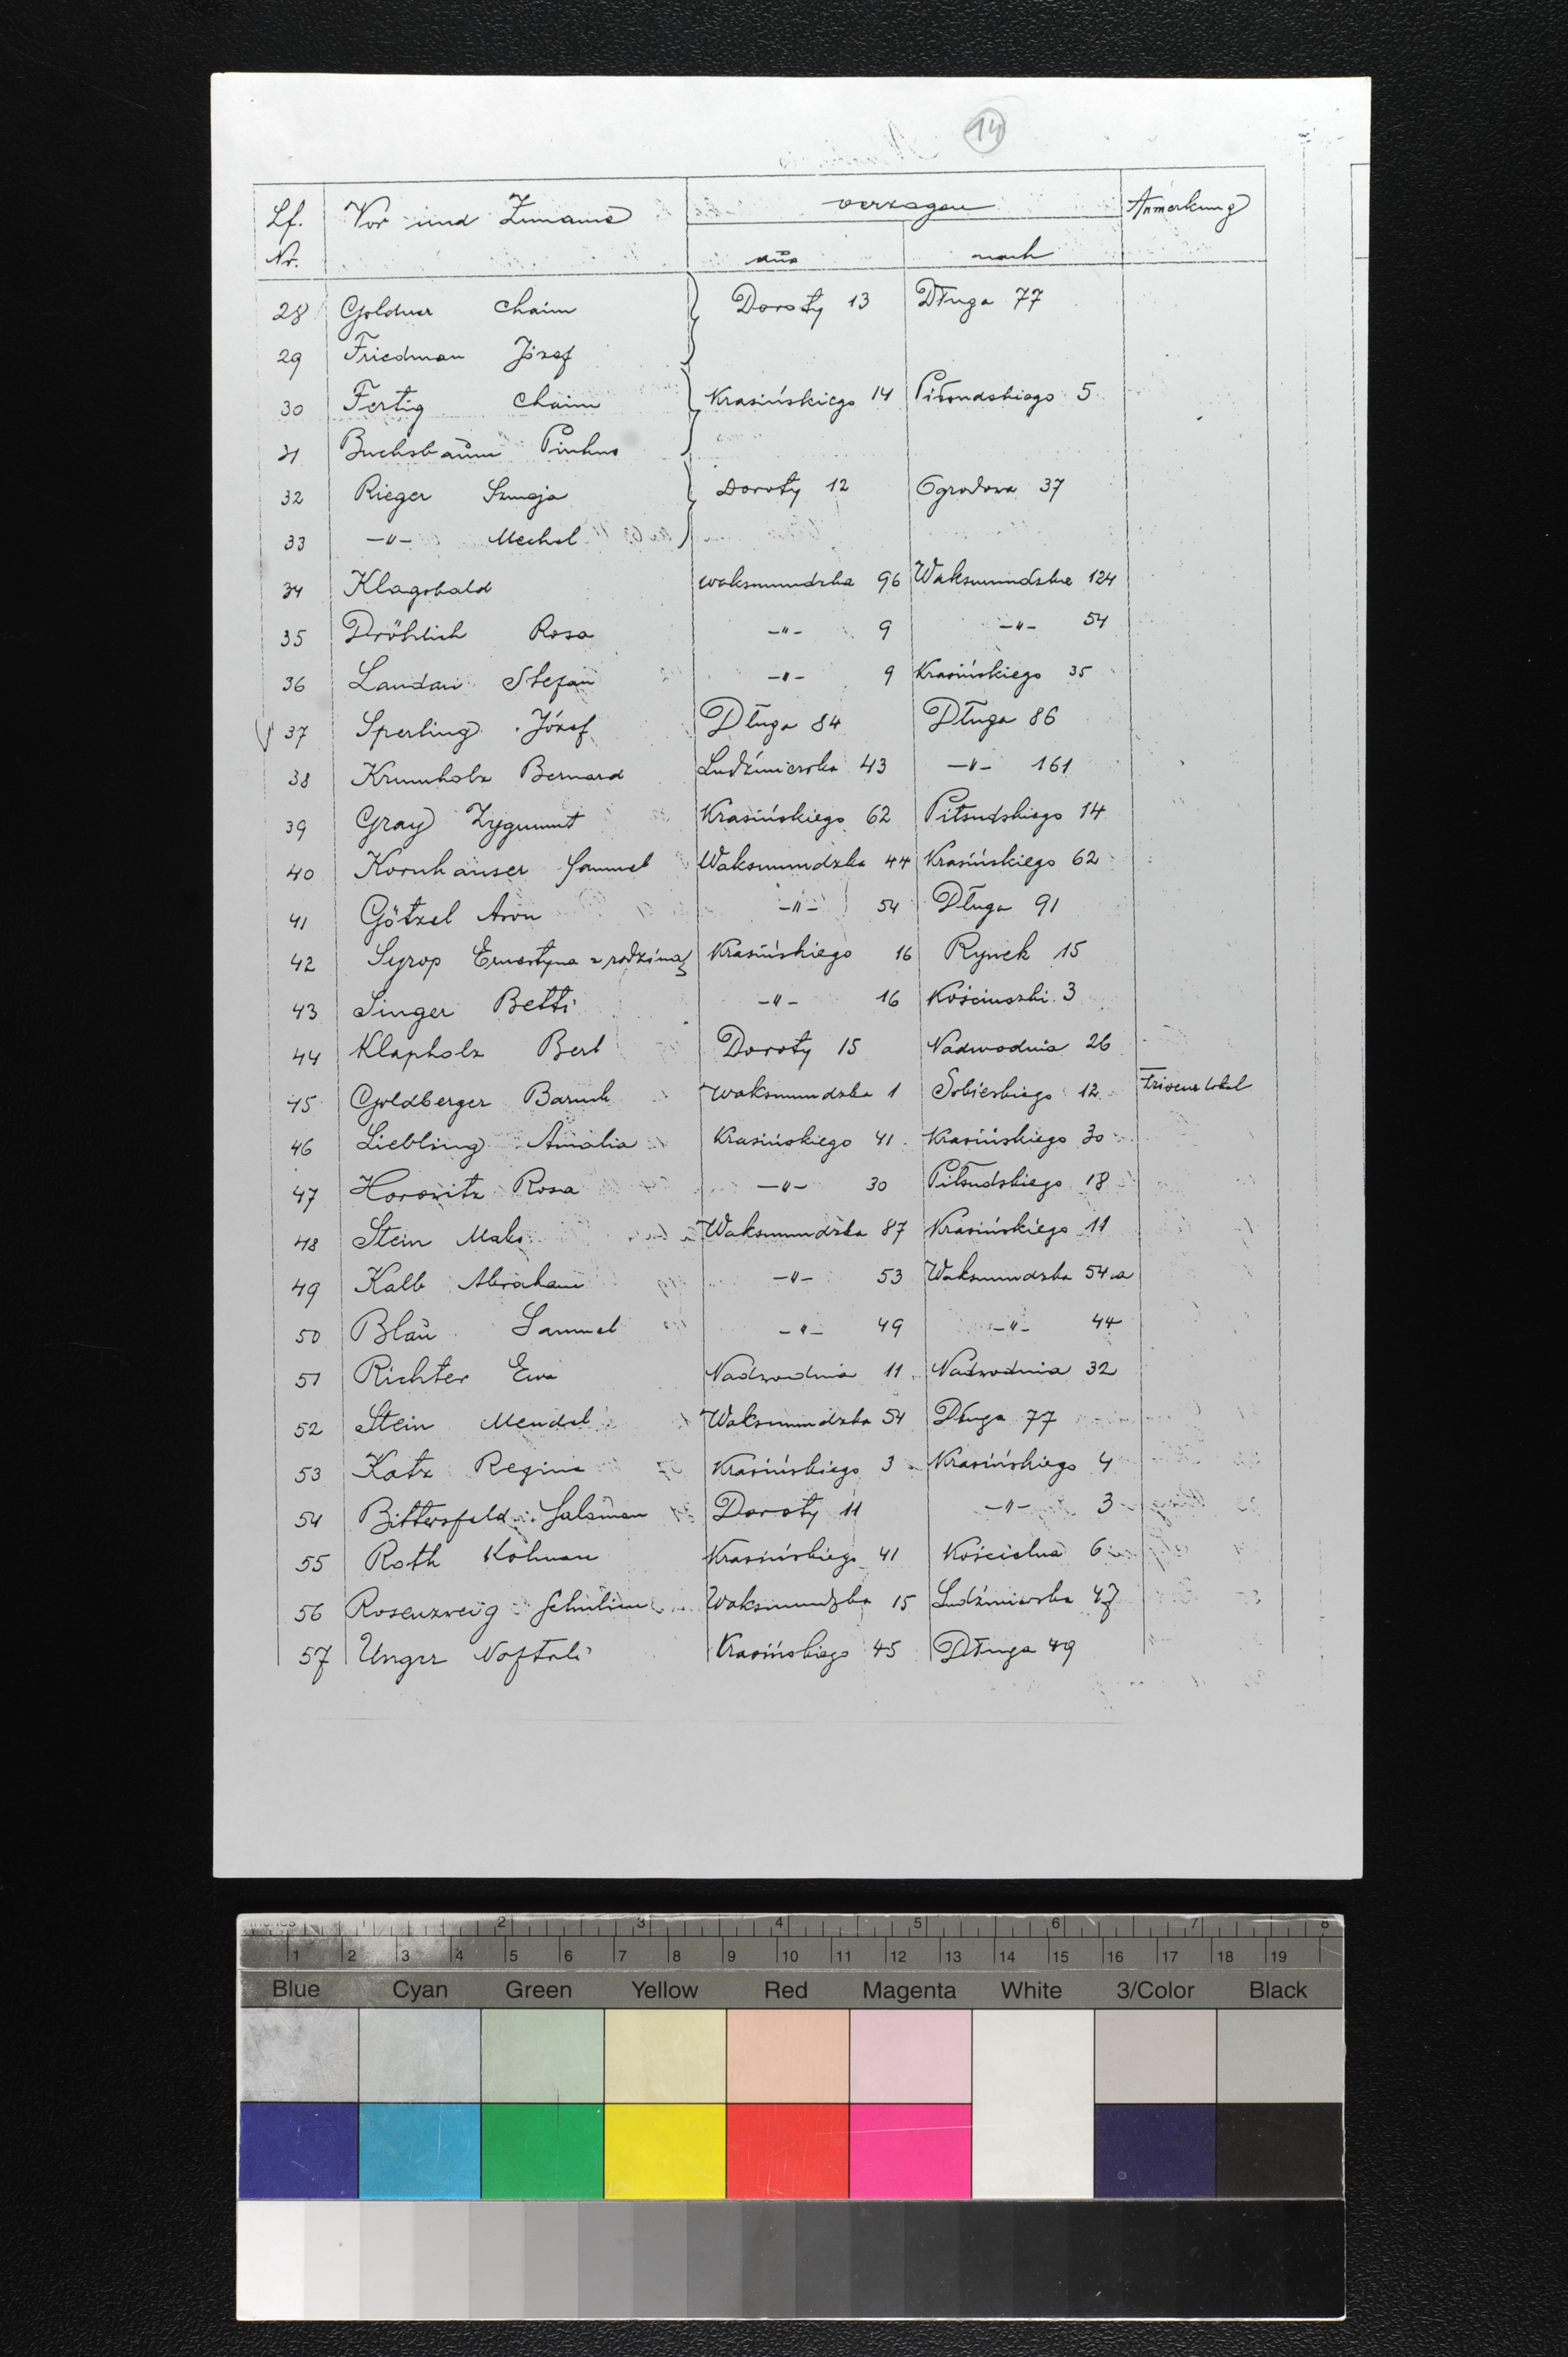 14
Lf. Vor und Zuname verzogen Anmerkung
Nr. aus nach
28 Goldner Chaim Doroty 13 Długa 77
29 Friedman Józef
30 Fertig Chaim Krasińskiego 14 Piłsudskiego 5
31 Buchsbaum Pinkus
32 Rieger Szmaja Doroty 12 Ogrodowa 37
33 -"- Mechel
34 Klagsbald Waksmundzka 96 Waksmundzka 124
35 Dröhlich Rosa -"- 9 -"- 54
36 Landau Stefan -"- 9 Krasińskiego 35
37 Sperling Józef Długa 84 Długa 86
38 Krumholz Bernard Ludźmierska 43 -"- 161
39 Gray Zygmunt Krasińskiego 62 Piłsudskiego 14
40 Kornhauser Samuel Waksmundzka 44 Krasińskiego 62
41 Götzel Aron -"- 54 Długa 91
42 Syrop Ernestyna z rodziną Krasińskiego 16 Rynek 15
43 Singer Betti -"- 16 Kościuszki 3
44 Klapholz Berl Doroty 15 Nadwodnia 26
45 Goldberger Baruch Waksmundzka 1 Sobieskiego 12 Friseur lokal
46 Liebling Amalia Krasińskiego 41 Krasińskiego 30
47 Horowitz Rosa -"- 30 Piłsudskiego 18
48 Stein Maks Waksmundzka 87 Krasińskiego 11
49 Kalb Abraham -"- 53 Waksmundzka 54a
50 Blau Samuel -"- 49 -"- 44
51 Richter Ewa Nadwodnia 11 Nadwodnia 32
52 Stein Mendel Waksmundzka 54 Długa 77
53 Katz Regina Krasińskiego 3 Krasińskiego 4
54 Bittersfeld Salomon Doroty 11 -"- 3
55 Roth Kolman Krasińskiego 41 Kościelna 6
56 Rosenzweig Schulim Waksmundzka 15 Ludźmierska
57 Unger Naftali Krasińskiego 45 Długa 49
inches 1 2 3 4 5 6 7 8
1 2 3 4 5 6 7 8 9 10 11 12 13 14 15 16 17 18 19
Blue Cyan Green Yellow Red Magenta White 3/Color Black